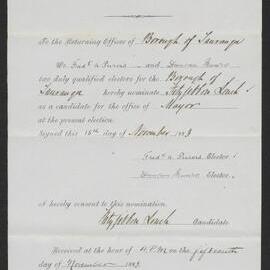 To the Returning Officer of Borough of Tauranga
We Fredk A Purvis and Duncan Munro
two duly qualified electors for the Borough of
Tauranga hereby nominate Fitzgibbon Louch
as a candidate for the office of Mayor
at the present election.
Signed this 15th day of November 1883
Fredk A Purvis Elector
Duncan Munro Elector.
I hereby consent to this nomination.
Fitzgibbon Louch Candidate
Received at the hour of P.M on the fifteenth
day of November 1883.